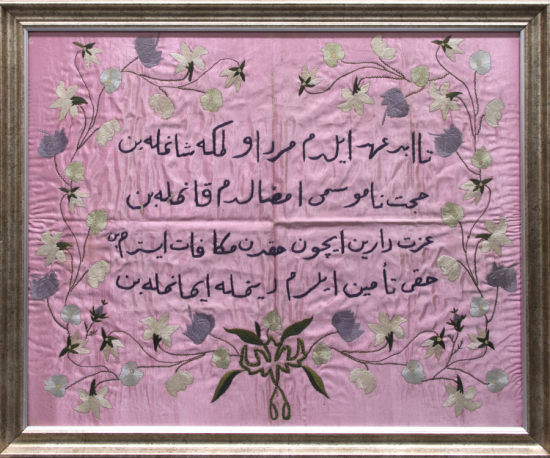 تا ابد عهد ايلدم مرد اولمكه شانمله بن
حجت ناموسمى امضالدم قانمله بن
عزت دارين ايچون حقدن مكافات ايسترم
حقى تأمين ايلرم دينمله ايمانمله بن